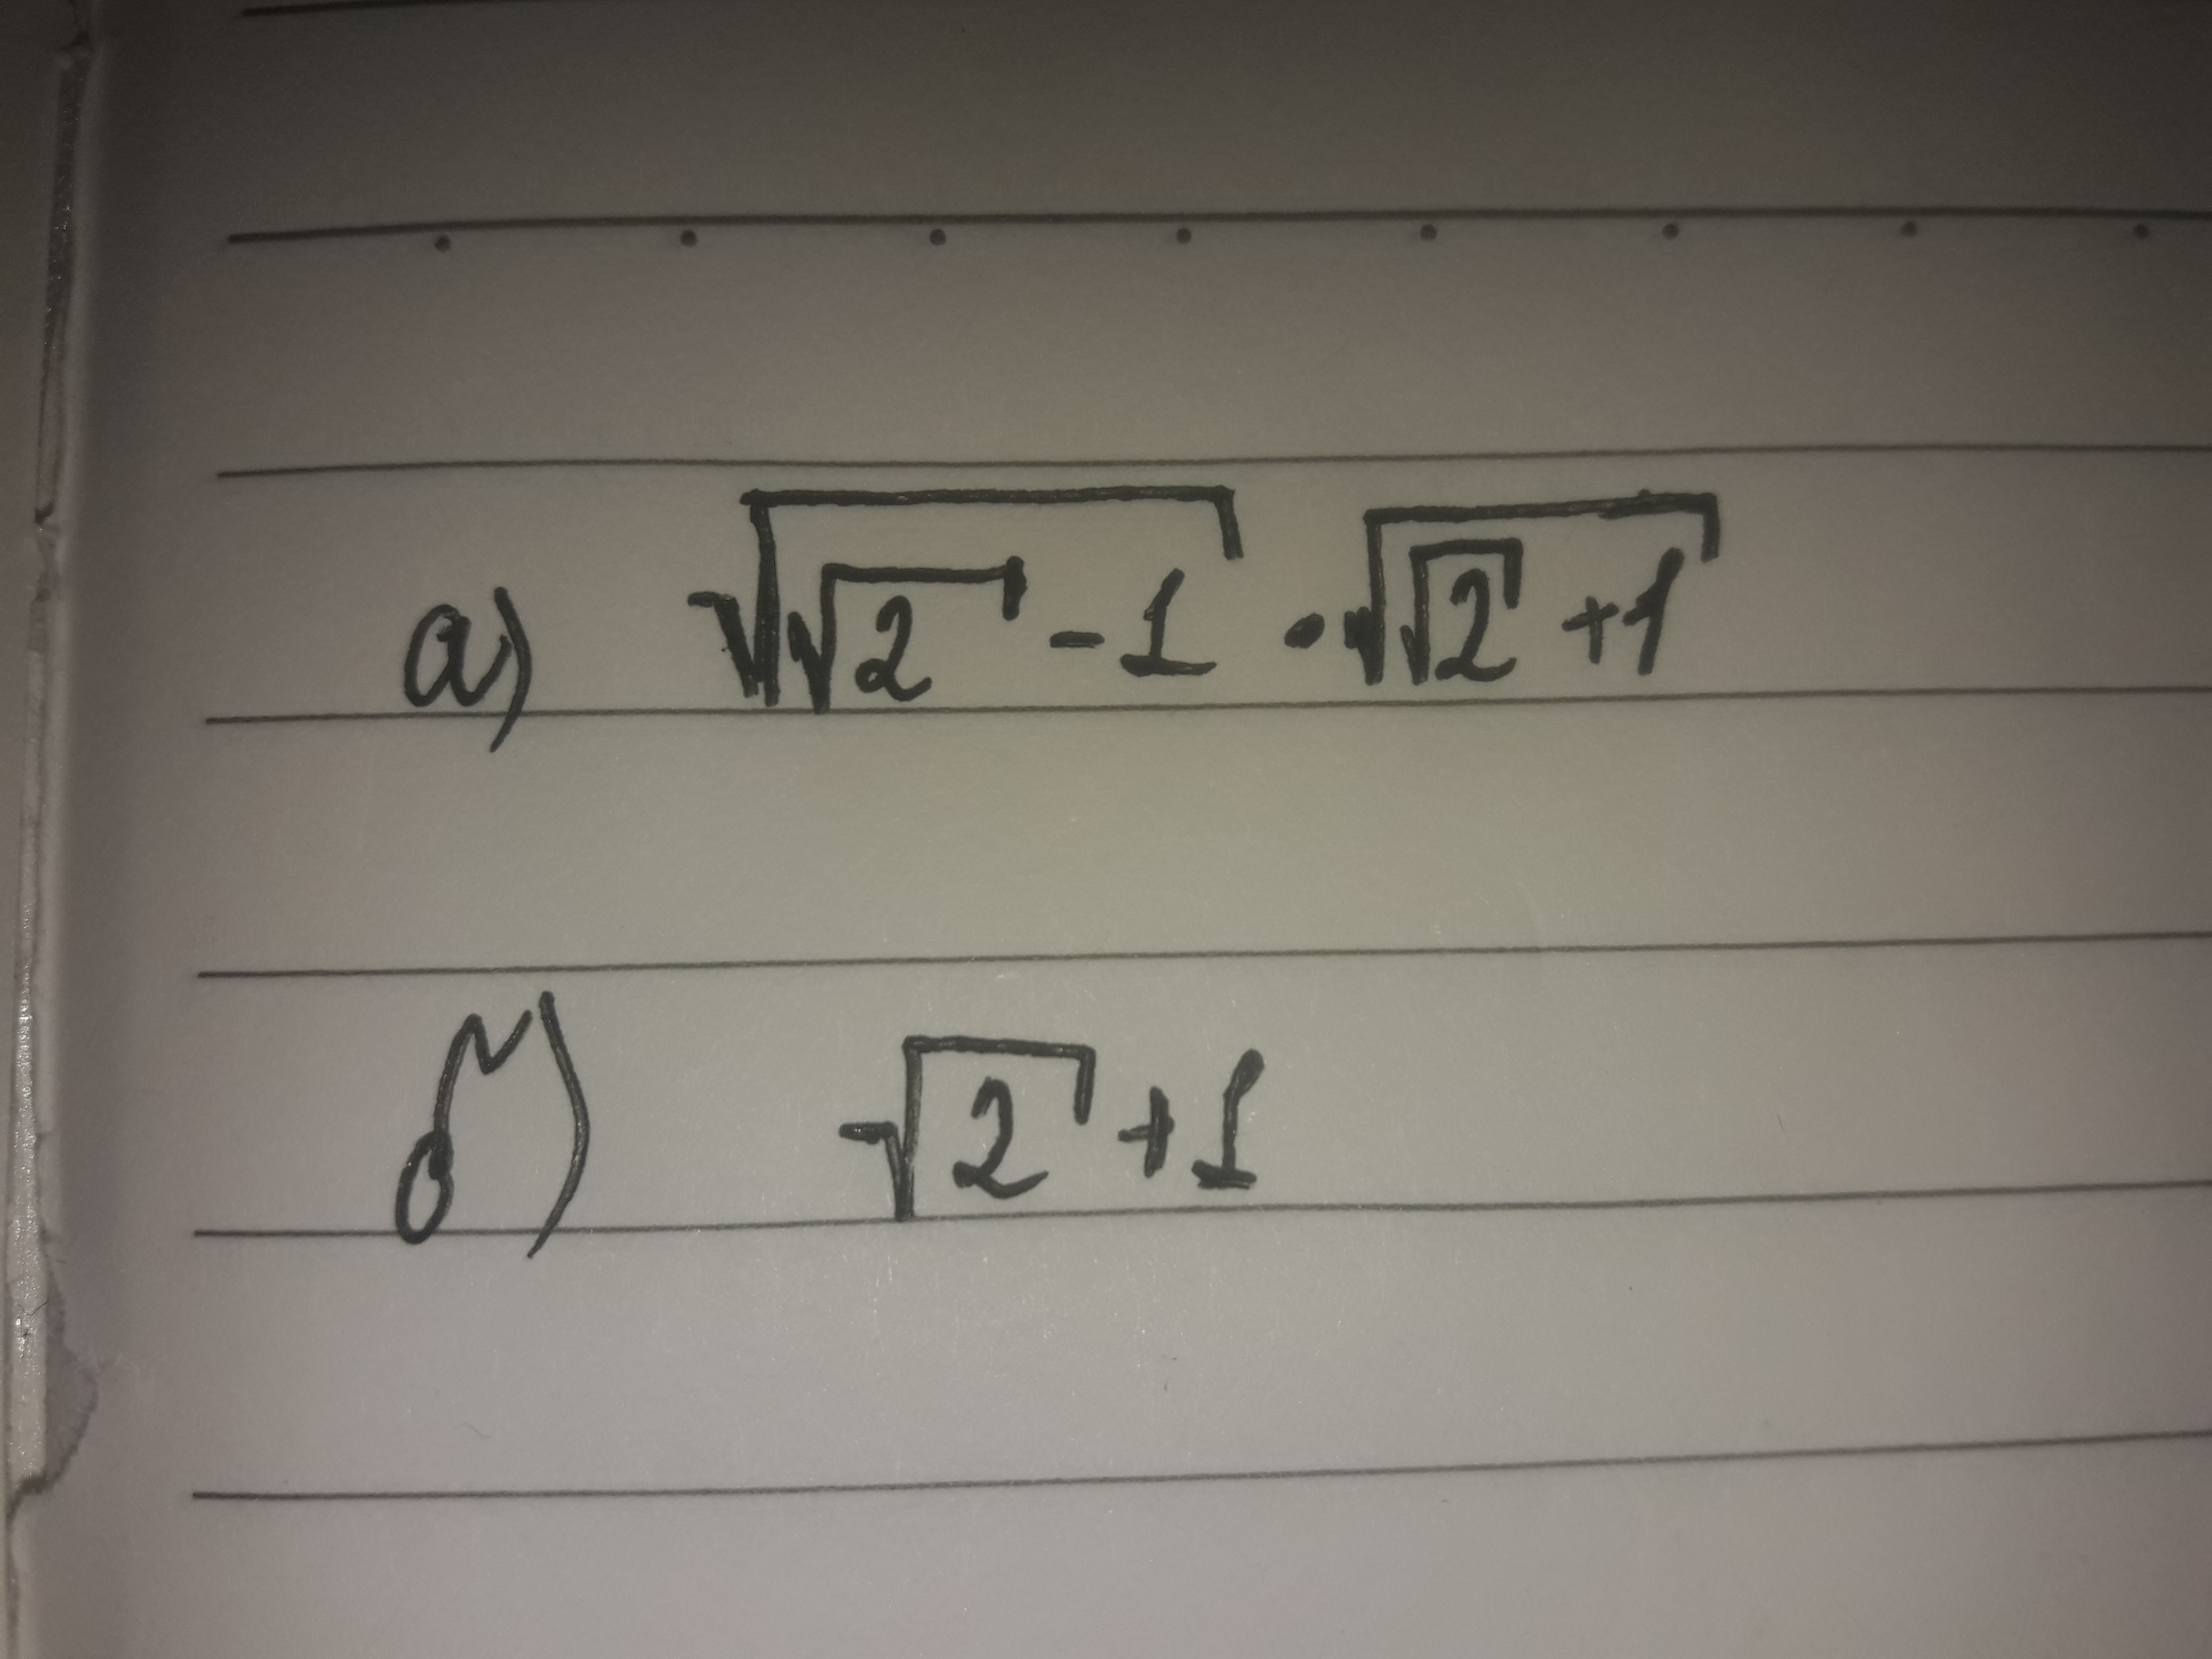 а) √(√2 - 1) · √(√2 + 1)
б) √2 + 1